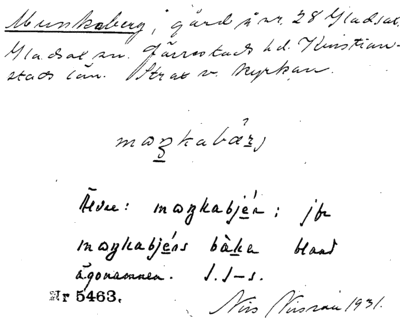 Munkaberg, gård å nr. 28 Gladsax
Gladsax sn. Järrestads hd. Kristian-
stads län. Strax v. kyrkan.
maŋkabärj
Även: maŋkabjér; jfr
maŋkabjérs bàka bland
ägonamnen. I. I-s.
Nr 5463.
1931.